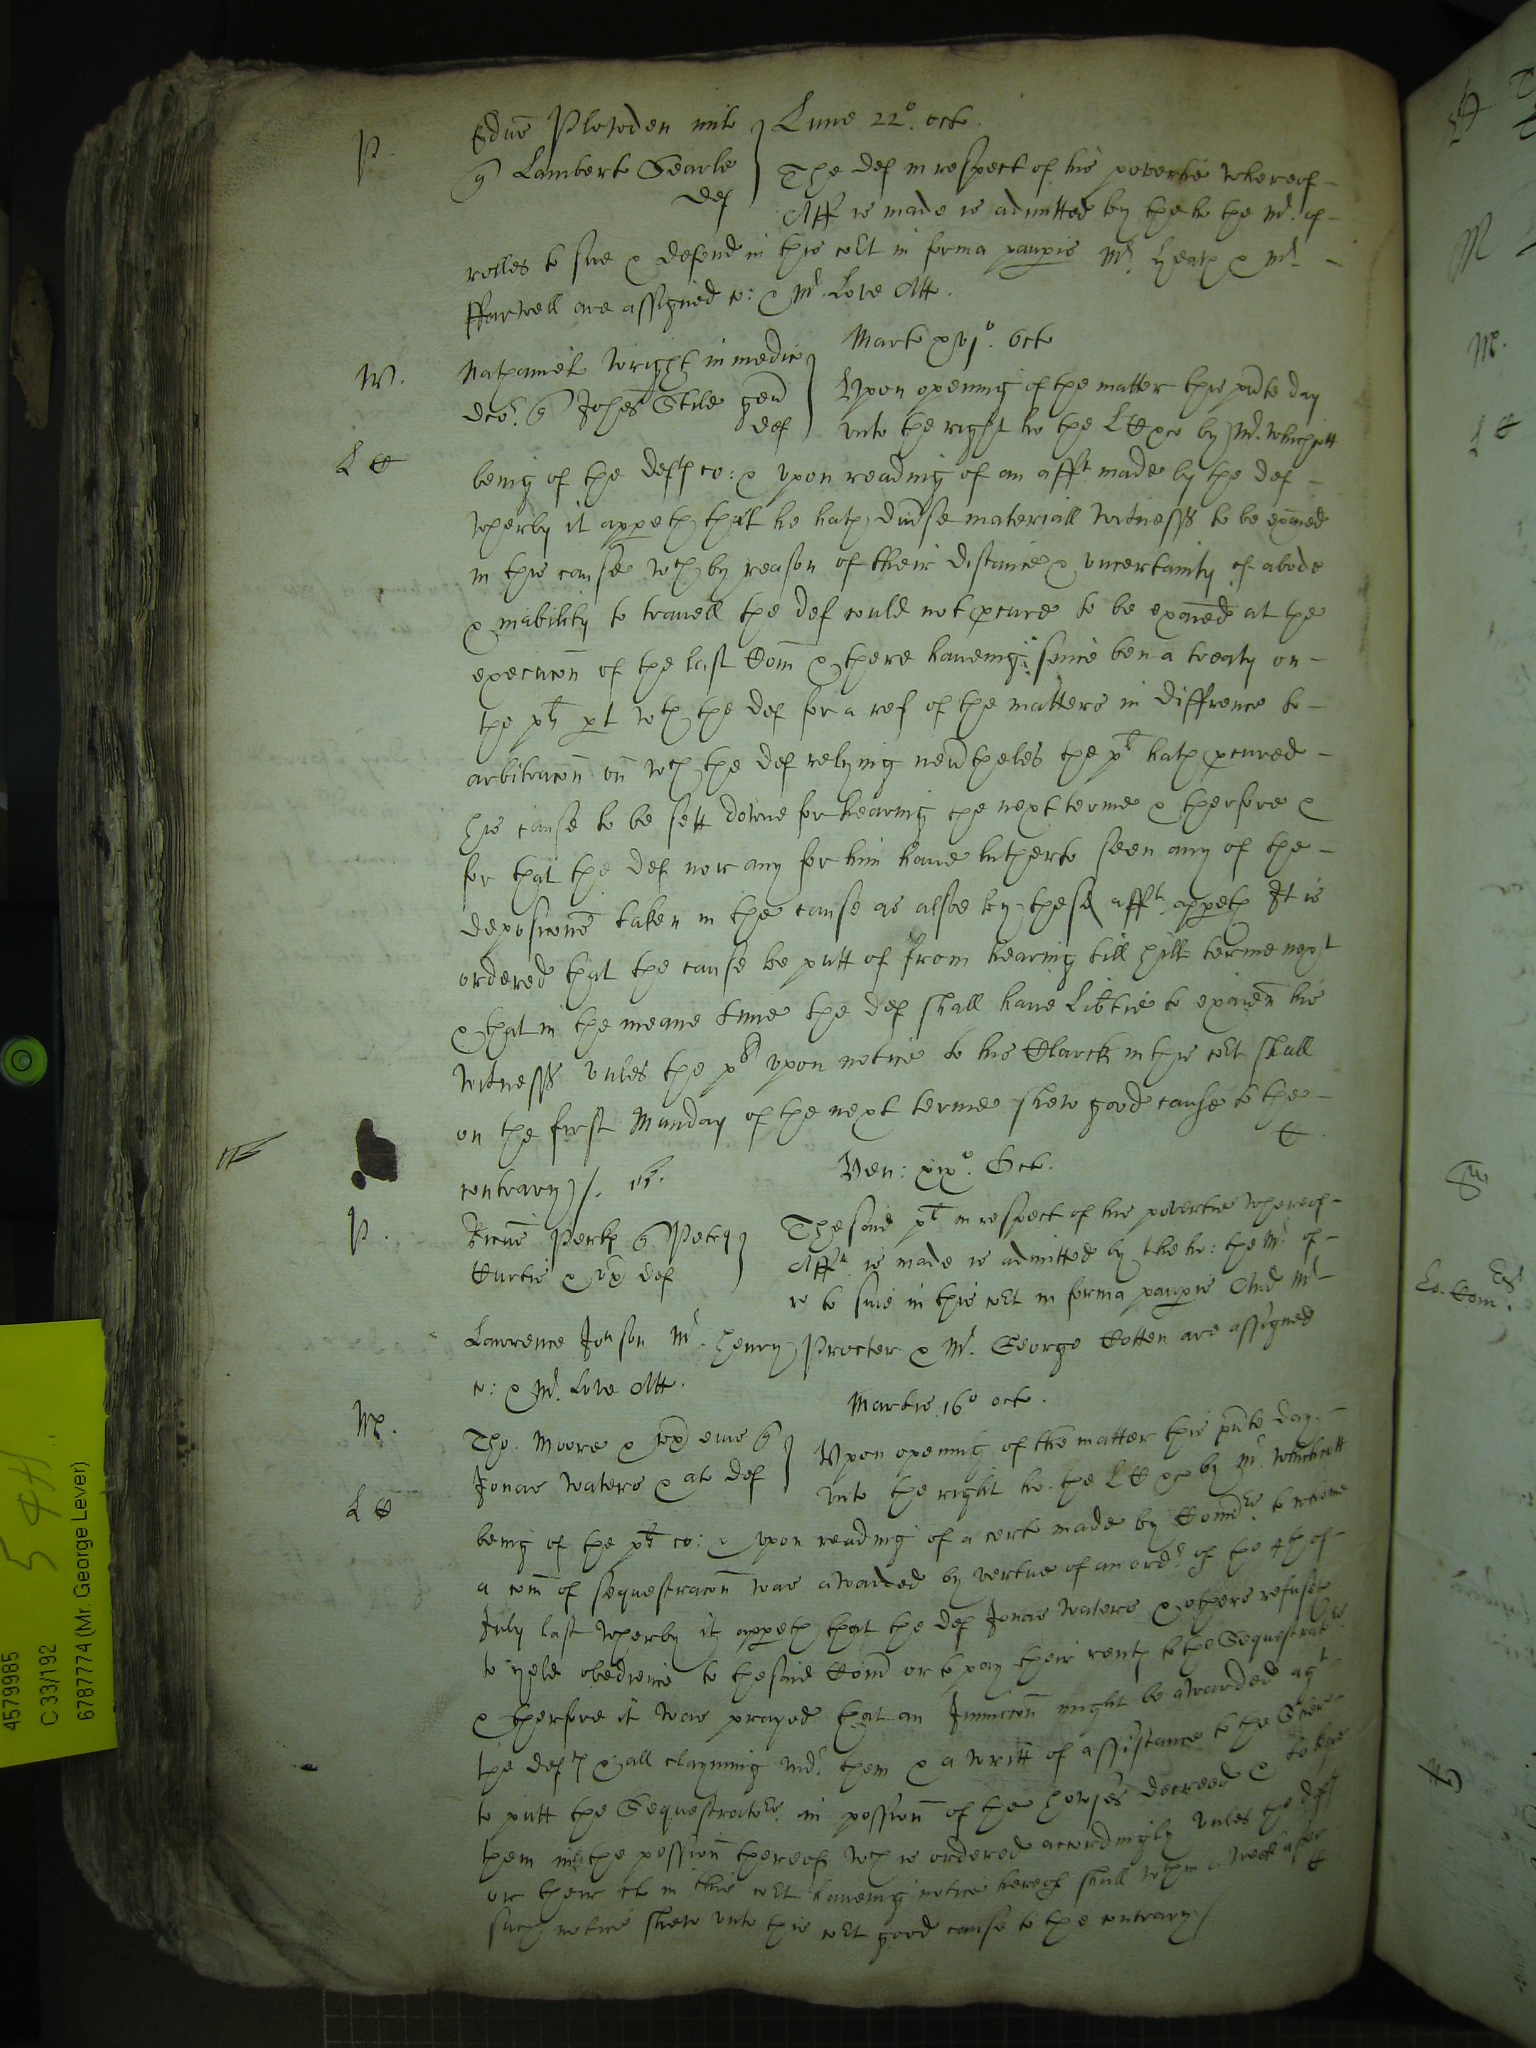 P. Edrūs Plowden mil
q Lambert Searle
def
Lune 22°. Oct.
The def in respect of his povertie whereof
Aff is made is admitted by the ho the Mr. of
rolles to sue & defend in this Cort in forma paupis Mr. Heath & Mr.
ffarwell are assigned co: & Mr. Love Att.
W. Nathaniel Wright in medic
dcōr. q Johes Stile geñ
def
Marte xvj°. Oct
Upon opening of the matter this pñte day
L C unto the right ho the L C &c by Mr. Whichcott
being of the defts co: & upon reading of an afft. made by the def
wherby it appeth that he hath divse materiall witnesss to be exaied
in this cause wch by reason of their distance & uncertainty of abode
& inability to travell the def could not pcure to be exaied at the
execucoñ of the last Com̄ & there haveing since ben a treaty on
the plts pt wth the def for a ref of the matters in diffrence to
arbitracon on wch the def relying nevtheles the plt hath pcured
his cause to be sett downe for hearing the next terme & therfore &
for that the def nor any for him have hitherto seen any of the
deposicons taken in the cause as alsoe by the sd afft. appeth It is
ordered that the cause be putt of from hearing till Hill terme next
& that in the meane time the def shall have libtie to exaien his
witnesss unles the plt upon notice to his Clarck in this Cort shall
on the first Munday of the next terme shew good cause to the
contrary /.
Ven: xix°. Oct.
P. Ricūs Perk q Petrū
Curtis & ux def
The said plt in respect of his povertie whereof
Afft. is made is admitted by the ho: the Mr of
re to sue in this Cort in forma paupis And Mr
Lawrence Jonson Mr. Henry Procter & Mr. George Cotten are assigned
co: & Mr. Love Att.
Martis 16° Oct.
M. Tho. Moore & ux eius q
Jonas Waters & al def
Upon opening of the matter this pñte day
L C unto the right ho. the L C &c by Mr. Whichcott
being of the plts co: & upon reading of a cert made by Comrs. to whome
a com̄ of sequestracoñ was awarded by vertue of an ordr of the 4th of
July last wherby it appeth that the def Jonas Waters & others refuse
to yeld obedience to the said Com̄ or to pay their rents to the Sequestratrs
& therfore it was prayed that an Iniunccoñ might be awarded agt
the defts & all clayming undr them & a writt of assistance to the Sher
to putt the Sequestratrs. in possion of the howses decreed &
them in the possion thereof wch is ordered accordingly unles the defts
or their cl in this Cort haveing notice hereof shall wthin a week after
such notice shew unto this Cort good cause to the contrary /
54H.
4579985
C 33/192
6787774 (Mr. George Lever)